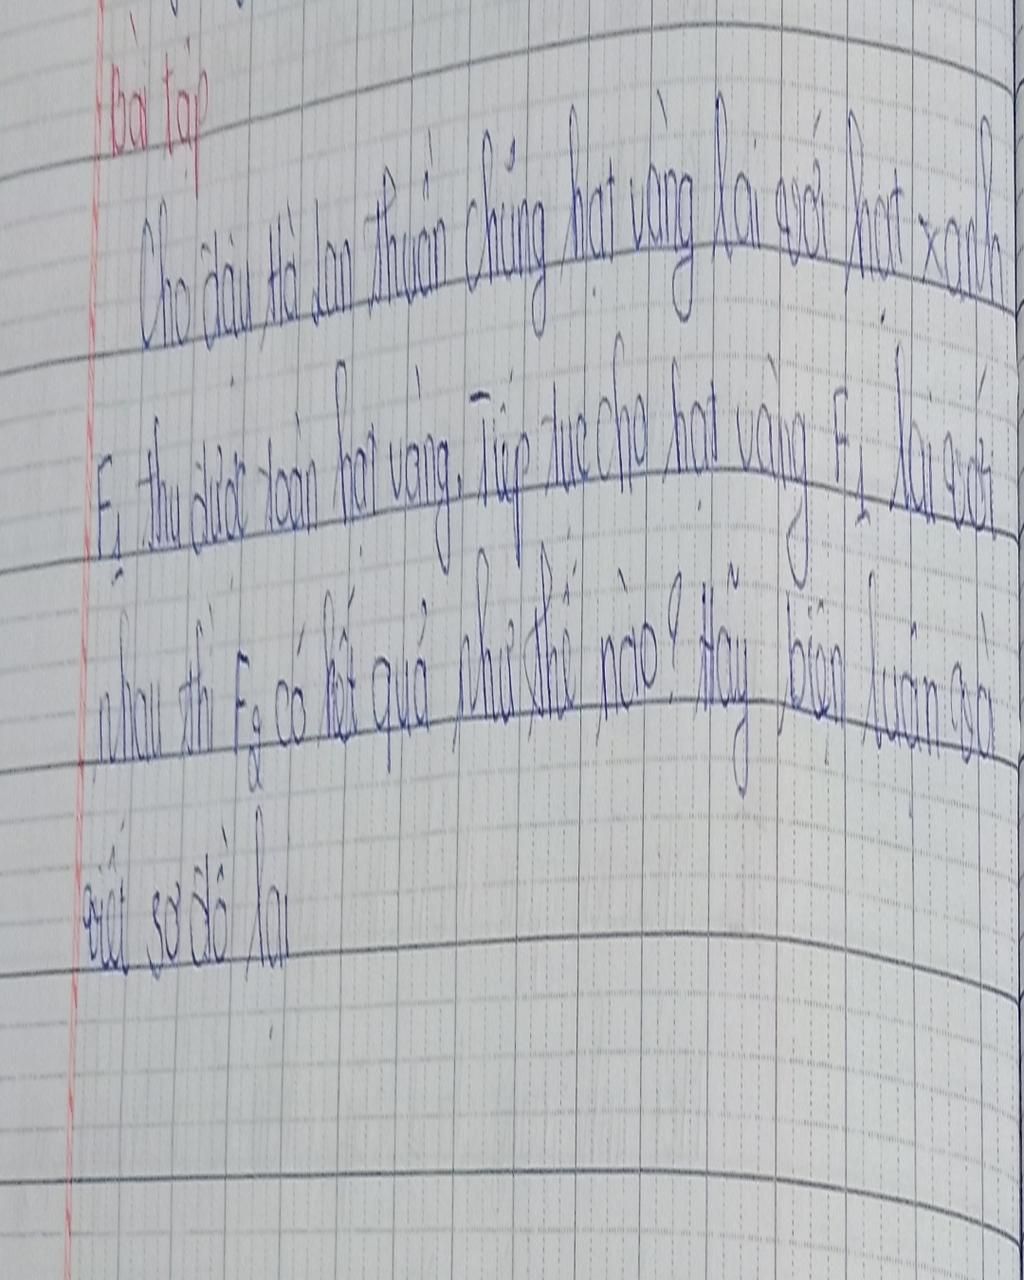 Bài tập
Cho đậu Hà Lan thuần chủng hạt vàng lai với hạt xanh
F1 thu được toàn hạt vàng. Tiếp tục cho hạt vàng F1 lai với
nhau thì F2 có kết quả như thế nào? Hãy biện luận và
viết sơ đồ lai